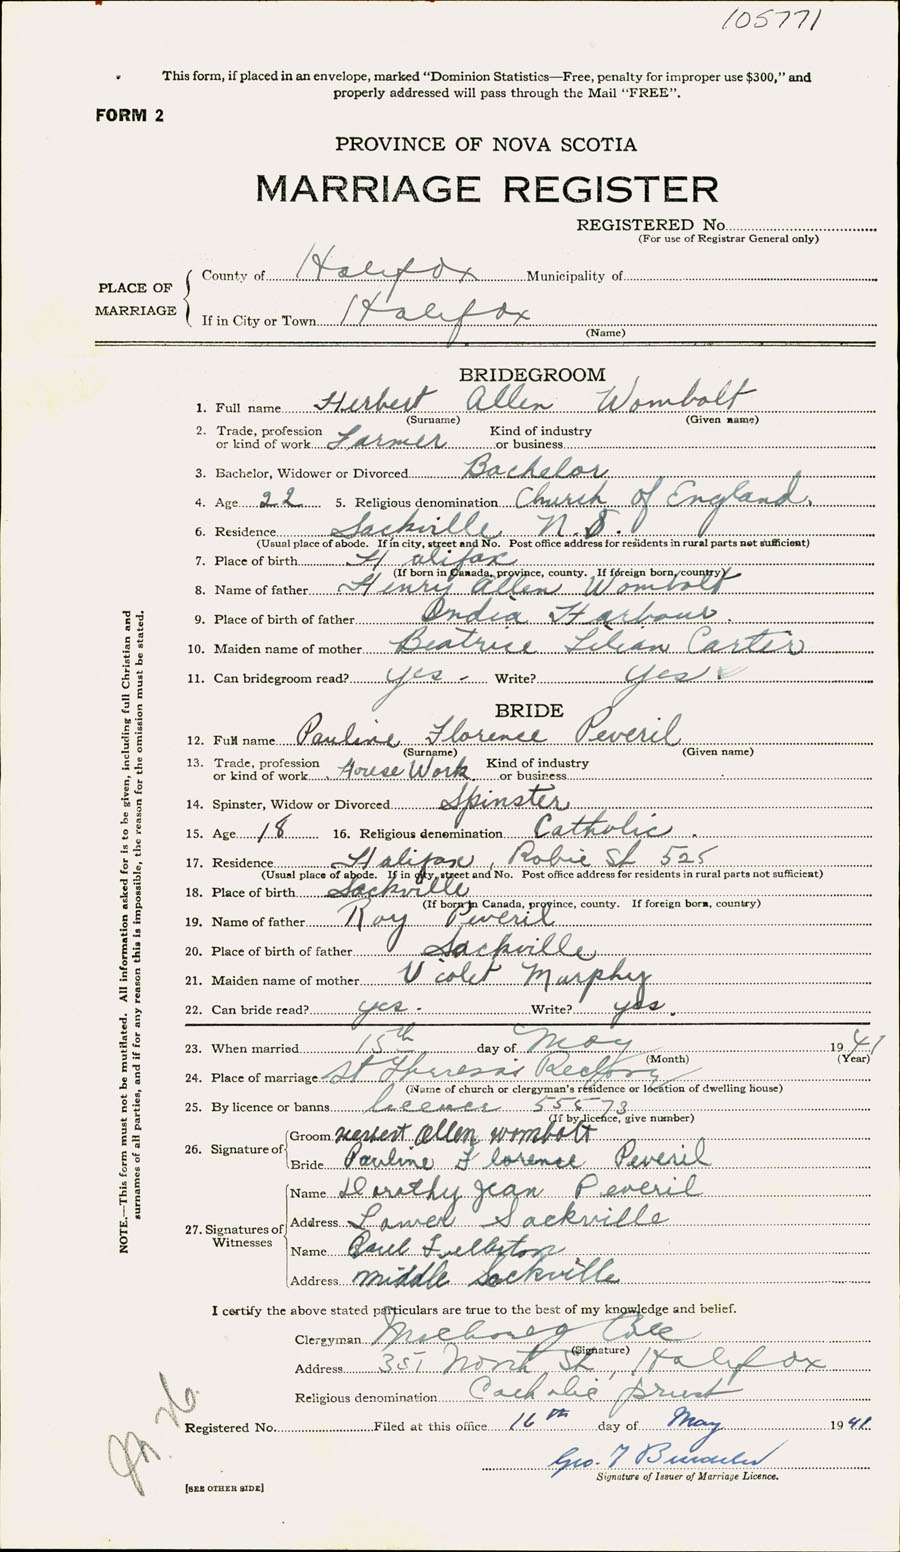 105771
This form, if placed in an envelope, marked “Dominion Statistics—Free, penalty for improper use $300,” and
properly addressed will pass through the Mail “FREE”.
FORM 2
PROVINCE OF NOVA SCOTIA
MARRIAGE REGISTER
REGISTERED No.
(For use of Registrar General only)
PLACE OF MARRIAGE
County of Halifax Municipality of
If in City or Town Halifax
(Name)
BRIDEGROOM
1. Full name Herbert Allen Wombolt
(Surname) (Given name)
2. Trade, profession or kind of work Farmer Kind of industry or business
3. Bachelor, Widower or Divorced Bachelor
4. Age 22 5. Religious denomination Church of England.
6. Residence Sackville N.S.
(Usual place of abode. If in city, street and No. Post office address for residents in rural parts not sufficient)
7. Place of birth Halifax
(If born in Canada, province, county. If foreign born, country)
8. Name of father Henry Allen Wombolt
9. Place of birth of father India Harbour.
10. Maiden name of mother Beatrice Lilian Carter
11. Can bridegroom read? yes - Write? yes
BRIDE
12. Full name Pauline Florence Peveril
(Surname) (Given name)
13. Trade, profession or kind of work House Work Kind of industry or business
14. Spinster, Widow or Divorced Spinster
15. Age 18 16. Religious denomination Catholic.
17. Residence Halifax, Robie St 525
(Usual place of abode. If in city, street and No. Post office address for residents in rural parts not sufficient)
18. Place of birth Sackville
(If born in Canada, province, county. If foreign born, country)
19. Name of father Roy Peveril
20. Place of birth of father Sackville
21. Maiden name of mother Violet Murphy
22. Can bride read? yes. Write? yes.
23. When married 15th day of May 1941
(Month) (Year)
24. Place of marriage St Theresa's Rectory
(Name of church or clergyman's residence or location of dwelling house)
25. By licence or banns licence 55573
(If by licence, give number)
26. Signature of
Groom Herbert Allen Wombolt
Bride Pauline Florence Peveril
27. Signatures of Witnesses
Name Dorothy Jean Peveril
Address Lower Sackville
Name Fullerton
Address middle Sackville
I certify the above stated particulars are true to the best of my knowledge and belief.
Clergyman
(Signature)
Address 351 North St, Halifax
Religious denomination Catholic priest
Registered No. Filed at this office 16th day of May 1941.
Geo.
Signature of Issuer of Marriage Licence.
[SEE OTHER SIDE]
NOTE.—This form must not be mutilated. All information asked for is to be given, including full Christian and
surnames of all parties, and if for any reason this is impossible, the reason for the omission must be stated.